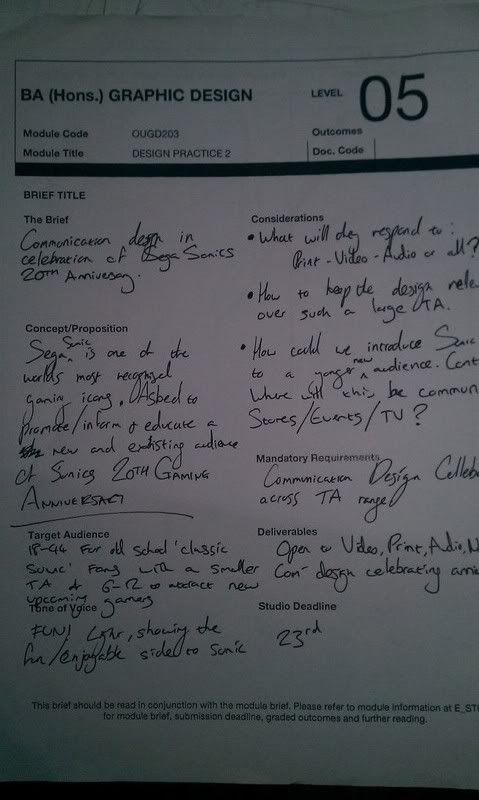 BA (Hons.) GRAPHIC DESIGN
LEVEL 05
Module Code OUGD203
Outcomes
Module Title DESIGN PRACTICE 2
Doc. Code
BRIEF TITLE
The Brief
Communication design in
celebration of Sega Sonics
20TH Anniversary.
Concept/Proposition
Sega Sonic is one of the
worlds most recognised
gaming icons. Asked to
promote/inform & educate a
new and existing audience
of Sonics 20TH GAMING
ANNIVERSARY
Target Audience
18-44 For old school 'classic
Sonic' Fans with a smaller
TA of 6-12 to attract new
upcoming gamers
Tone of Voice
FUN! Light, showing the
fun/enjoyable side to Sonic
Considerations
• What will they respond to:
Print - Video - Audio or all?
• How to keep the design rele
over such a large TA.
• How could we introduce Sonic
to a younger new audience. Cont
Where will this be commun
Stores/Events/TV?
Mandatory Requirements
Communication Design Celeb
across TA range
Deliverables
Open to Video, Print, Audio, N
Com- design celebrating anni
Studio Deadline
23rd
This brief should be read in conjunction with the module brief. Please refer to module information at E_ST
for module brief, submission deadline, graded outcomes and further reading.